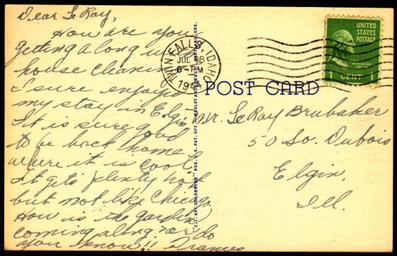 Dear LeRoy,
How are you
getting along with
house cleaning
I sure enjoyed
my stay in Elgin.
It is sure good
to be back home
where it is cool
It gets plenty hot
but not like Chicago.
How is the garden
coming along? or do
you know!! Frances
TWIN FALLS, IDAHO
JUL 28
6-PM
UNITED STATES
POSTAGE
1 CENT 1
POST CARD
Mr. LeRoy Brubaker
50 So. Dubois
Elgin,
Ill.